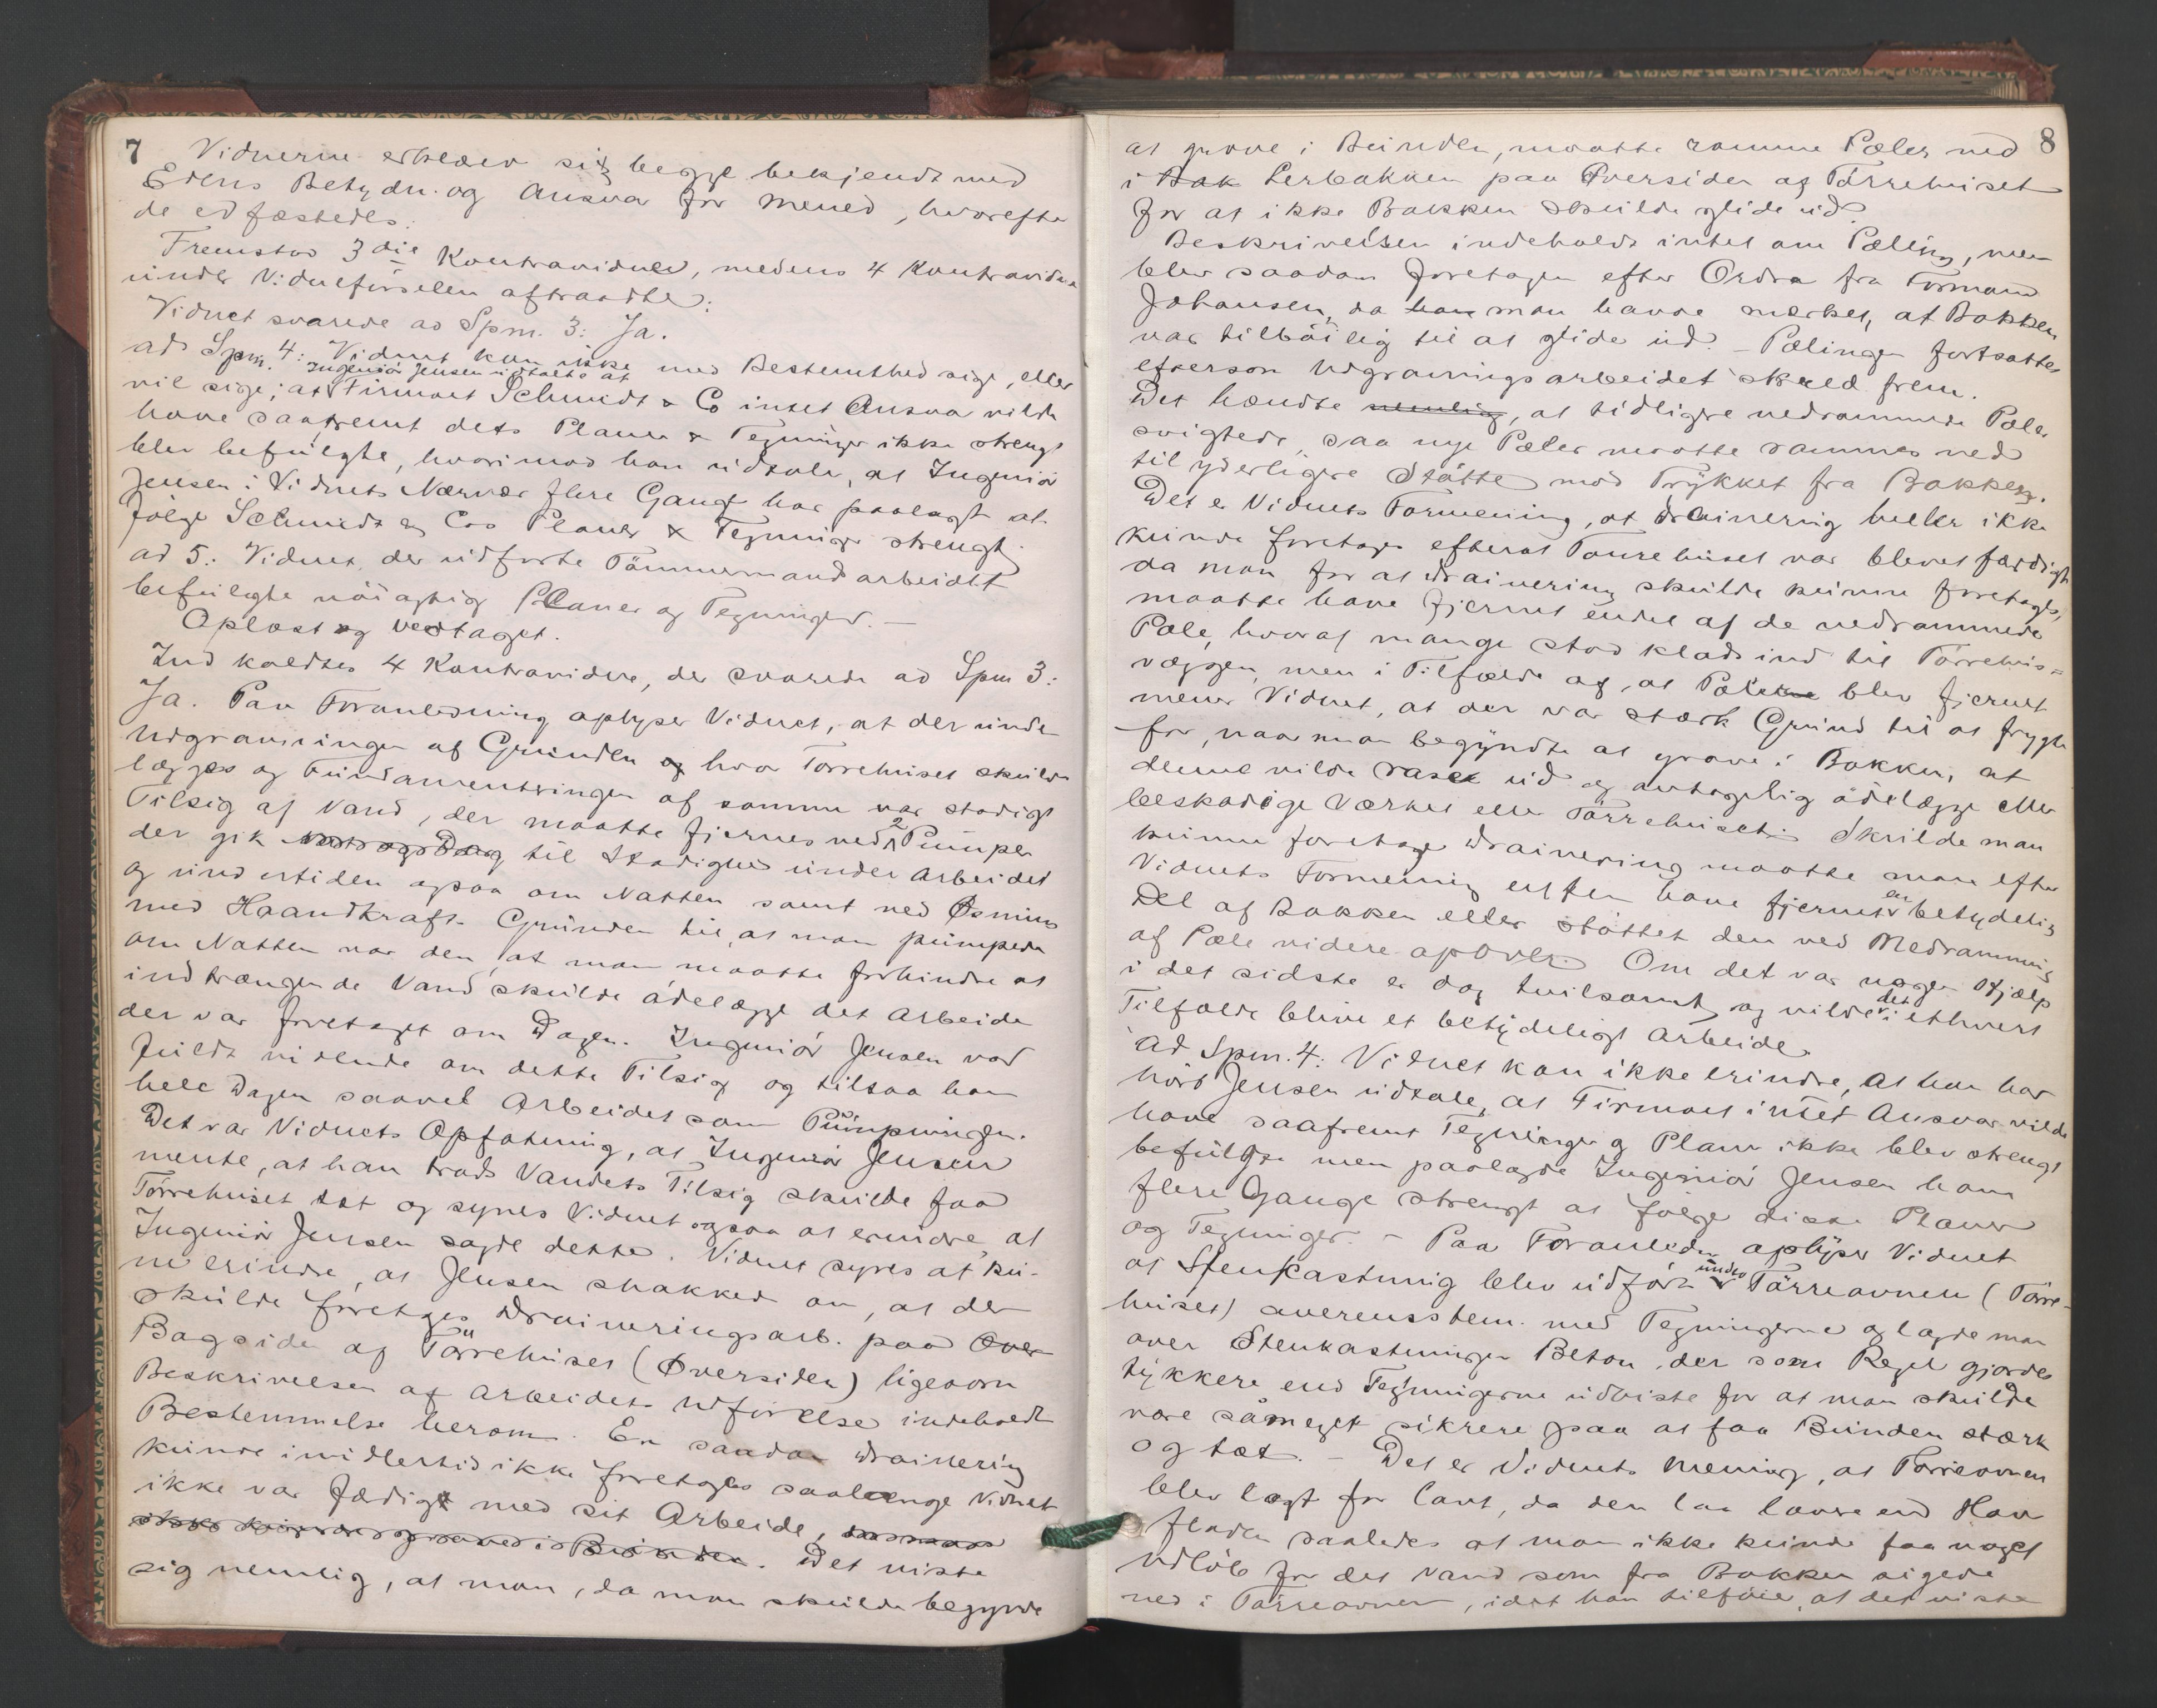 7
Vidnerne erklærer sig begge bekjendt med
Edens Betydn. og Ansvar for Mened, hvorefter
de edfæstedes.
Fremstod 3die Kontravidne, medens 4 Kontravidne
under Vidneførselen aftraadte:
Vidnet svarede ad Spm. 3: Ja.
ad Spm. 4: Vidnet kan ikke med Bestemthed sige, eller
Ingeniør Jensen udtalte at
vil sige; at Firmaet Schmidt & Co intet Ansvar vilde
have saafremt dets Planer & Tegninger ikke strengt
blev befulgte, hvorimod han udtale, at Ingeniør
Jensen i Vidnets Nærvær flere Gange har paalagt at
følge Schmidt & Cos Planer & Tegninger strengt.
ad 5: Vidnet, der udførte Tømmermandsarbeidet
befulgte nøiagtig Planer og Tegninger. —
Oplæst og vedtaget.
Ind kaldtes 4 Kontravidne, der svarede ad Spm 3:
Ja. Paa Foranledning oplyser Vidnet, at der under
Udgravningen af Grunden og hvor Tørrehuset skulde
lægges og Fundamentringen af samme var stadigt
Tilsig af Vand, der maatte fjernes ved 2 Pumper
der gik Nat og Dag til Stadighed under Arbeidet
og undertiden ogsaa om Natten samt ved Øsning
med Haandkraft. Grunden til, at man pumpede
om Natten var den, at man maatte forhindre at
indtrængende Vand skulde ødelægge det Arbeide
der var foretaget om Dagen. Ingeniør Jensen var
fuldt vidende om dette Tilsig og tilsaa han
hele Dagen saavel Arbeidet som Pumpningen.
Det var Vidnets Opfatning, at Ingeniør Jensen
mente, at han trods Vandets Tilsig skulde faa
Tørrehuset tæt og synes Vidnet ogsaa at erindre, at
Ingeniør Jensen sagde dette. Vidnet synes at kun-
ne erindre, at Jensen snakked om, at der
skulde foretages Draineringsarb. paa Over
Bagsiden af Tørrehuset (Oversiden) ligesom
Beskrivelsen af Arbeidets Udførelse indeholdt
Bestemmelse herom. En saadan Drainering
kunde imidlertid ikke foretages saalænge Vidnet
ikke var færdigt med sit Arbeide, da man
ikke kunde grave i Bunden. Det viste
sig nemlig, at man, da man skulde begynde
8
at grave i Bunden, maatte ramme Pæler ned
i Bak Lerbakken paa Oversiden af Tørrehuset
for at ikke Bakken skulde glide ud.
Beskrivelsen indeholdt intet om Pæling, men
blev saadan foretagen efter Ordre fra Formand
Johansen, da han man havde mærket, at Bakken
var tilbøilig til at glide ud. — Pælingen fortsattes
eftersom Udgravningsarbeidet skred frem.
Det hændte nemlig, at tidligere nedrammede Pæler
svigtede, saa nye Pæler maatte rammes ned
til yderligere Støtte mod Trykket fra Bakken.
Det er Vidnets Formening, at Drainering heller ikke
kunde foretages efterat Tørrehuset var blevet færdigt
da man for at Drainering skulde kunne foretages,
maatte have fjernet endel af de nedrammede
Pæle, hvoraf mange stod klods ind til Tørrehus-
væggen, men i Tilfælde af, at Pælene blev fjernet
mener Vidnet, at der var stærk Grund til at frygte
for, naar man begyndte at grave i Bakken, at
denne vilde rase ud og antagelig ødelægge eller
beskadige Værket eller Tørrehuset. Skulde man
kunne foretage Drainering maatte man efter
Vidnets Formening enten have fjernet en betydelig
Del af Bakken eller støttet den ved Nedramming
af Pæle videre opover. Om det var nogen Hjælp
i det sidste er dog tvilsomt, og vilde det i ethvert
Tilfælde blive et betydeligt Arbeide.
Ad Spm. 4: Vidnet kan ikke erindre, at han har
hørt Jensen udtale, at Firmaet intet Ansvar vilde
have saafremt Tegninger og Planer ikke blev strengt
befulgte men paalagde Ingeniør Jensen ham
flere Gange strengt at følge disse Planer
og Tegninger. — Paa Foranledn. oplyser Vidnet
at Stenkastning blev udført under Tørreovnen (Tørre-
huset) overensstem. med Tegningerne og lagde man
over Stenkastningen Beton, der som Regel gjordes
tykkere end Tegningerne udviste for at man skulde
være såmeget sikrere paa at faa Bunden stærk
og tæt. — Det er Vidnets Mening, at Tørreovnen
blev lagt for lavt, da den laa lavere end Hav
fladen saaledes at man ikke kunde faa noget
Udløb for det Vand som fra Bakken sigede
ned i Tørreovnen, idet han tilføier, at det viste